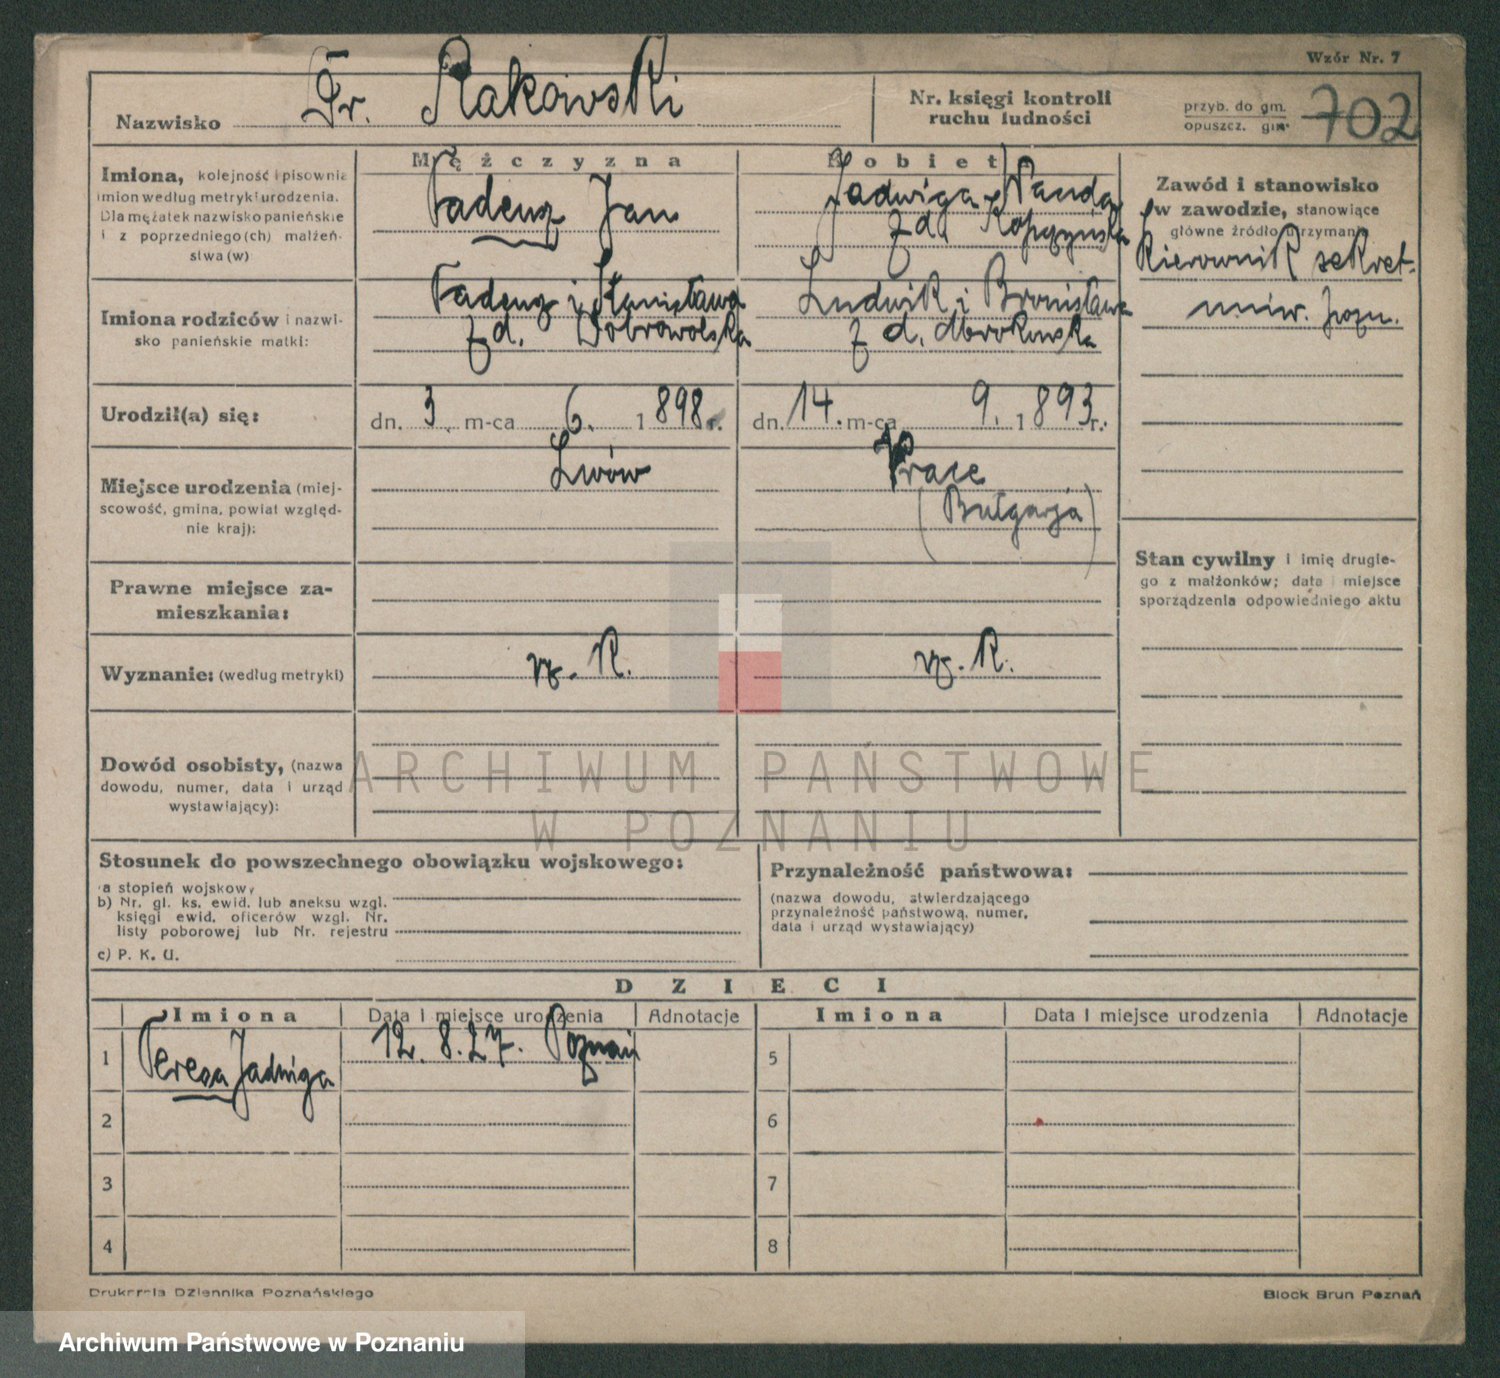 Wzór Nr. 7
Nazwisko Dr. Rakowski
Nr. księgi kontroli
ruchu ludności
przyb. do gm.
opuszcz. gm.
702
Mężczyzna
Kobieta
Imiona, kolejność i pisownia
imion według metryki urodzenia.
Dla mężatek nazwisko panieńskie
i z poprzedniego(ch) małżeń-
stwa(w)
Tadeusz Jan
Jadwiga Wanda
z d.
Zawód i stanowisko
w zawodzie, stanowiące
główne źródło utrzymania
Kierownik sekret.
uniw. Pozn.
Imiona rodziców i nazwi-
sko panieńskie matki:
Tadeusz i Stanisława
z d. Dobrowolska
Ludwik i Bronisława
z d.
Urodził(a) się:
dn. 3. m-ca 6. 1898 r.
dn. 14. m-ca 9. 1893 r.
Miejsce urodzenia (miej-
scowość, gmina, powiat względ-
nie kraj):
Lwów
Wrace
(Bułgarja)
Stan cywilny i imię drugie-
go z małżonków; data i miejsce
sporządzenia odpowiedniego aktu
Prawne miejsce za-
mieszkania:
Wyznanie: (według metryki)
rz. k.
rz. k.
Dowód osobisty, (nazwa
dowodu, numer, data i urząd
wystawiający):
ARCHIWUM PAŃSTWOWE
W POZNANIU
Stosunek do powszechnego obowiązku wojskowego:
a stopień wojskowy
b) Nr. gl. ks. ewid. lub aneksu wzgl.
księgi ewid. oficerów wzgl. Nr.
listy poborowej lub Nr. rejestru
c) P. K. U.
Przynależność państwowa:
(nazwa dowodu, stwierdzającego
przynależność państwową, numer,
data i urząd wystawiający)
DZIECI
Imiona
Data i miejsce urodzenia
Adnotacje
Imiona
Data i miejsce urodzenia
Adnotacje
1 Teresa Jadwiga 12. 8. 27. Poznań
5
2
6
3
7
4
8
Drukarnia Dziennika Poznańskiego
Block Brun Poznań
Archiwum Państwowe w Poznaniu